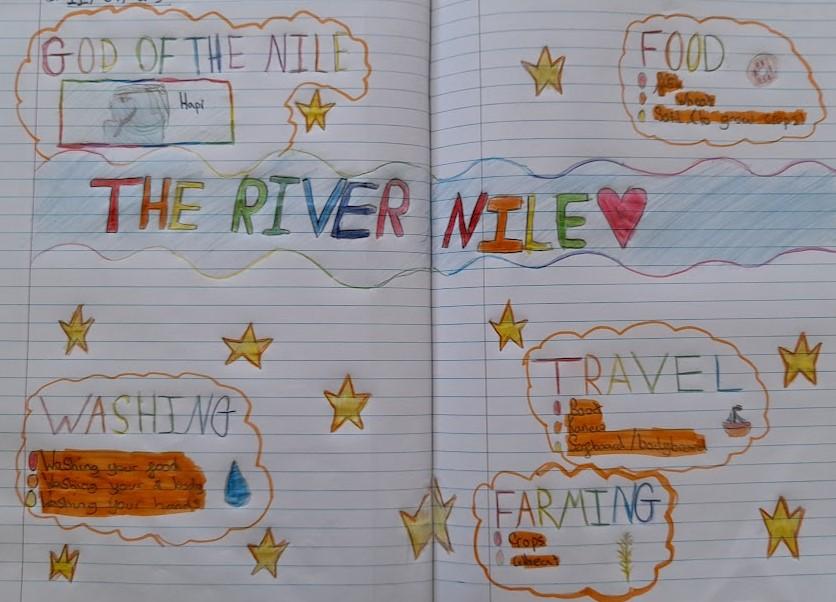 GOD OF THE NILE
Hapi
FOOD
Wheat
Soil (to grow crops)
THE RIVER NILE
WASHING
Washing your food
Washing your body
Washing your hands
TRAVEL
Boat
Kanew
/bodyboard
FARMING
Crops
Wheat